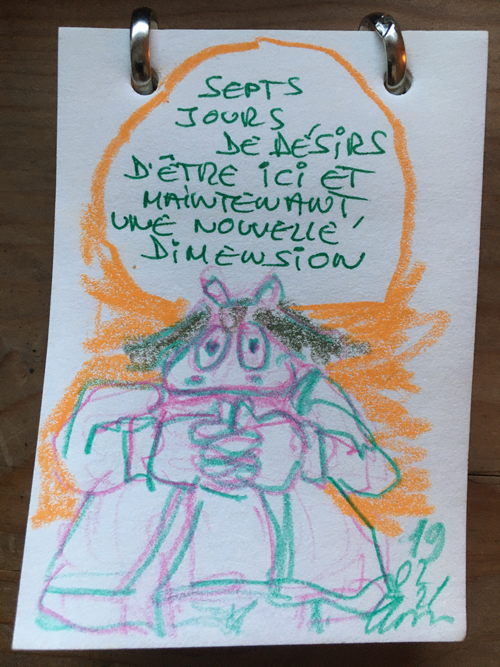 SEPTS
JOURS
DE DÉSIRS
D'ÊTRE ICI ET
MAINTENANT
UNE NOUVELLE
DIMENSION
19
02
21